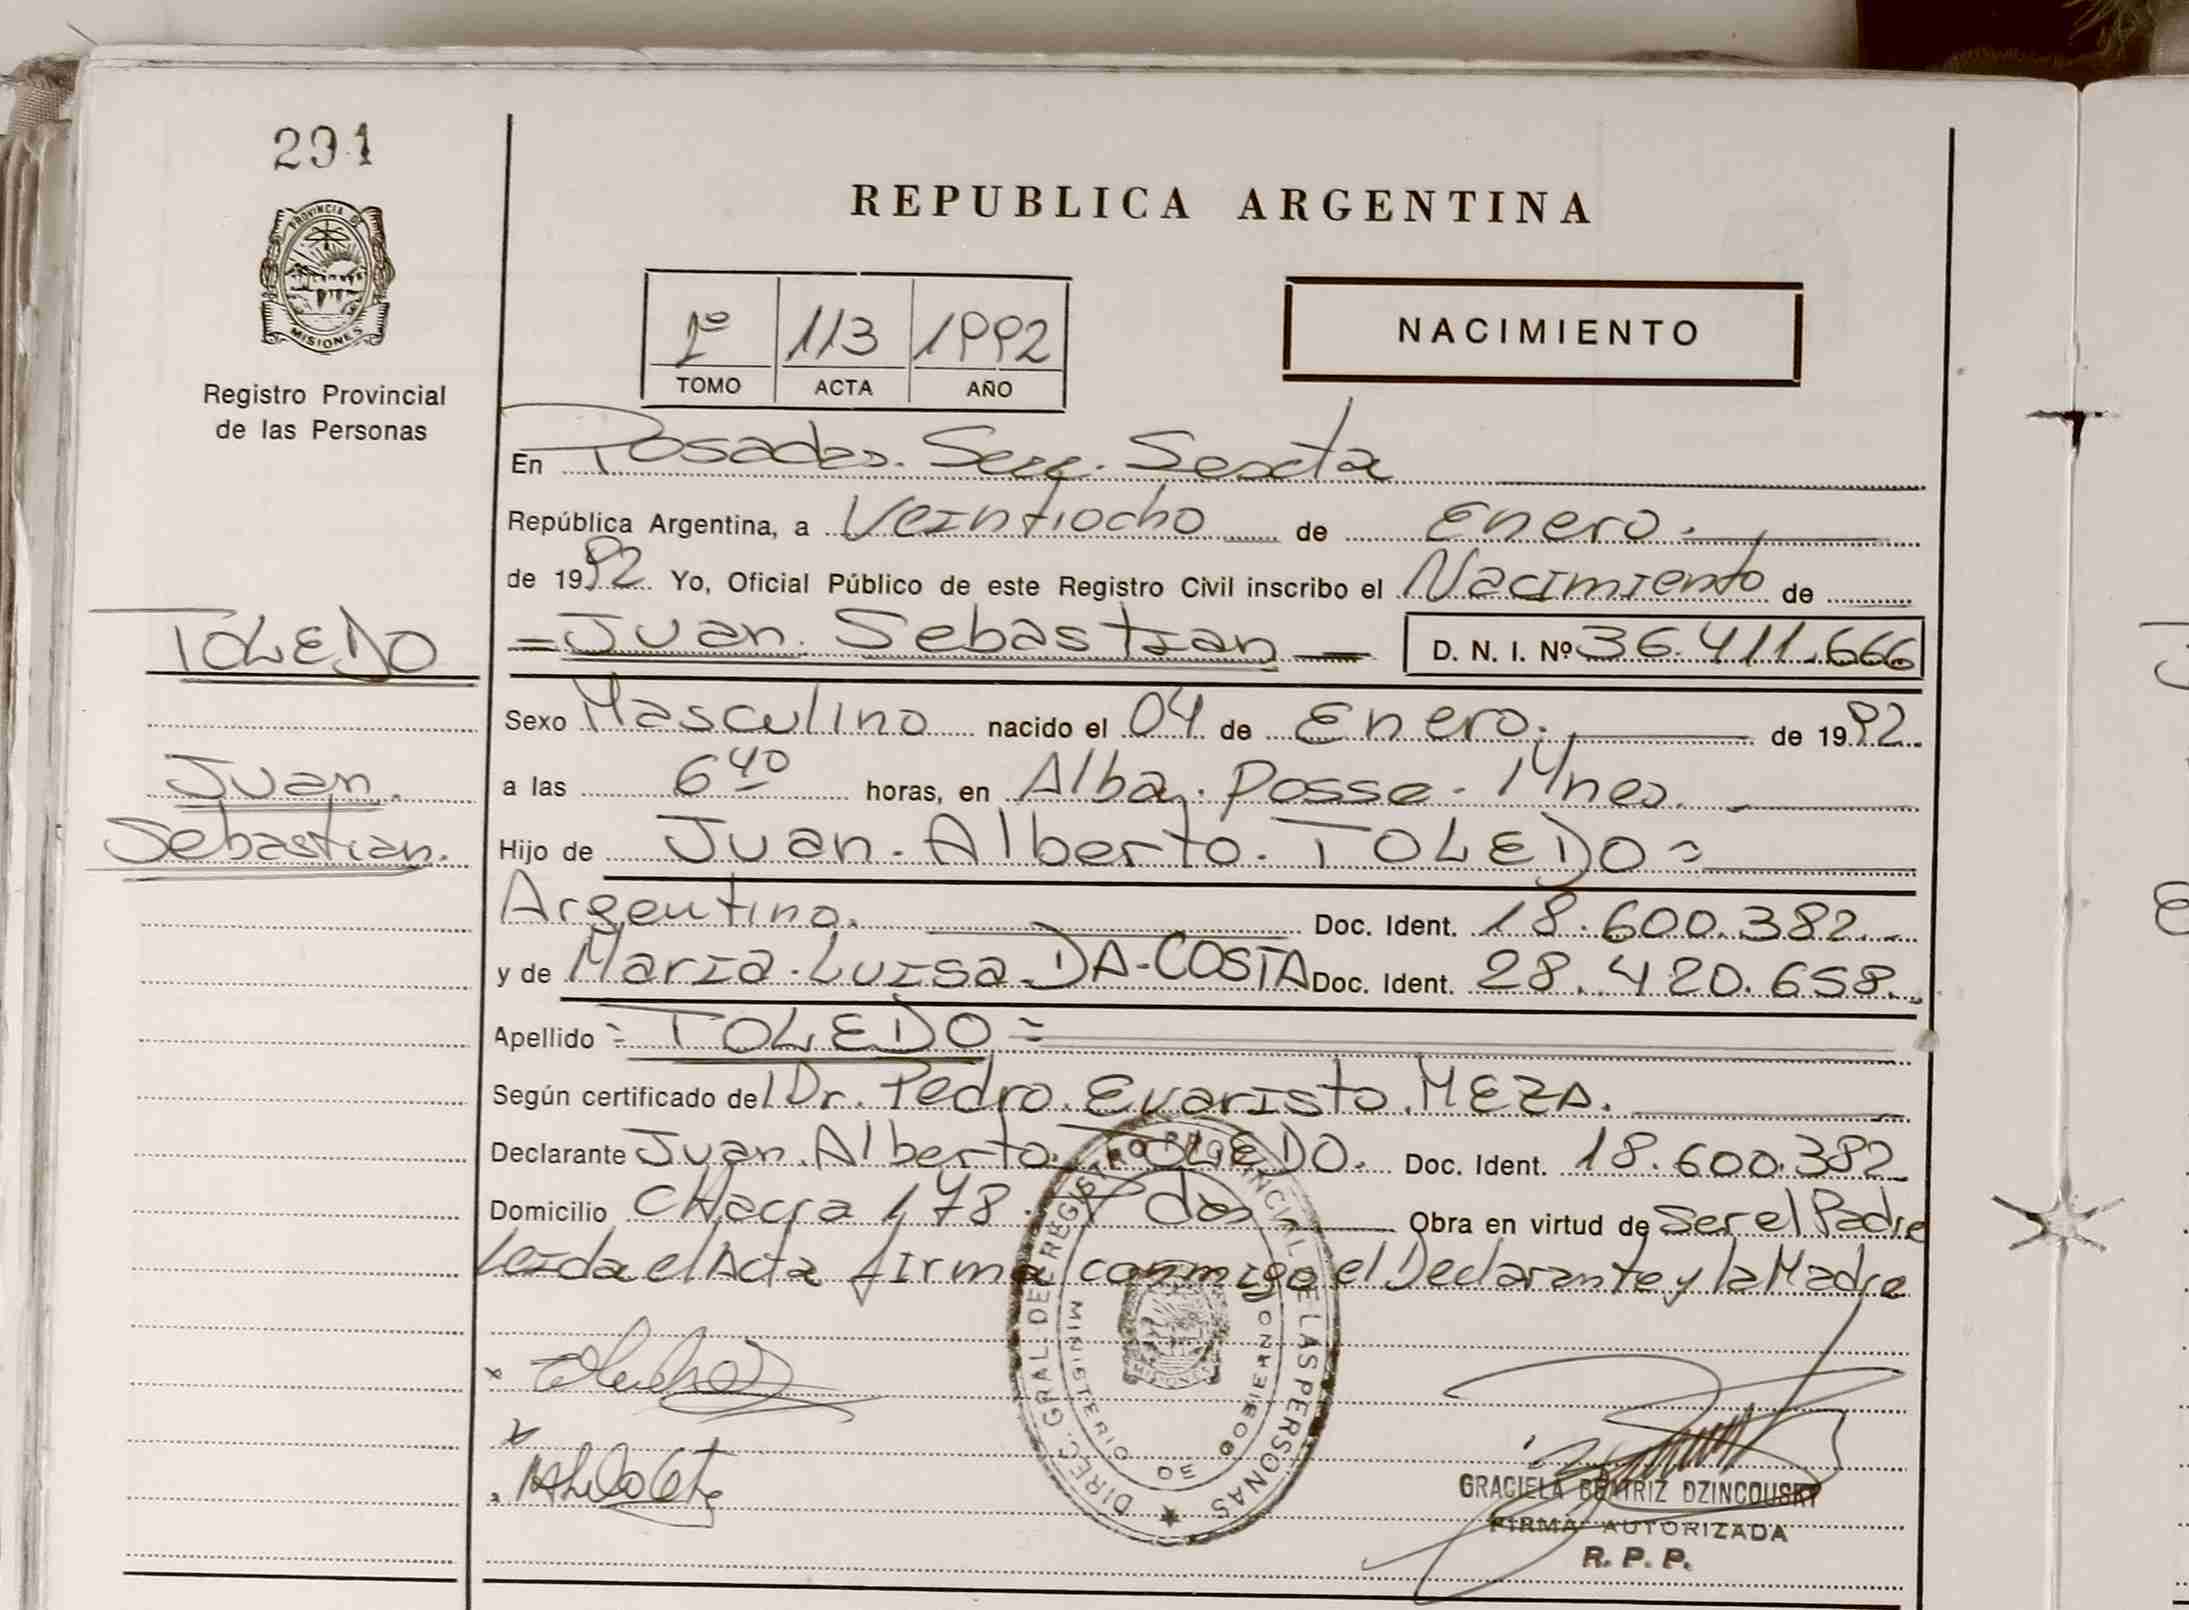 291
PROVINCIA DE
MISIONES
Registro Provincial
de las Personas
REPUBLICA ARGENTINA
1º 113 1992
TOMO ACTA AÑO
NACIMIENTO
En Posadas. Secc. Sexta
República Argentina, a Veintiocho de Enero.
de 1992. Yo, Oficial Público de este Registro Civil inscribo el Nacimiento de
TOLEDO
= Juan. Sebastian D. N. I. Nº 36.411.666
Sexo Masculino nacido el 04 de Enero. de 1992.
Juan.
Sebastian.
a las 6 40 horas, en Alba. Posse - Mnes.
Hijo de Juan. Alberto. TOLEDO =
Argentino. Doc. Ident. 18.600.382.-
y de Maria. Luisa. DA-COSTA Doc. Ident. 28.420.658.
Apellido = TOLEDO =
Según certificado del Dr. Pedro. Evaristo. MEZA.
Declarante Juan. Alberto. TOLEDO. Doc. Ident. 18.600.382
Domicilio CHacra 178. Pdas Obra en virtud de Ser el Padre
Leida el Acta firma conmigo el Declarante y la Madre
DIREC. GRAL. DE REGISTRO PROVINCIAL DE LAS PERSONAS
MINISTERIO DE GOBIERNO
GRACIELA BEATRIZ DZINCOUSKY
FIRMA AUTORIZADA
R. P. P.